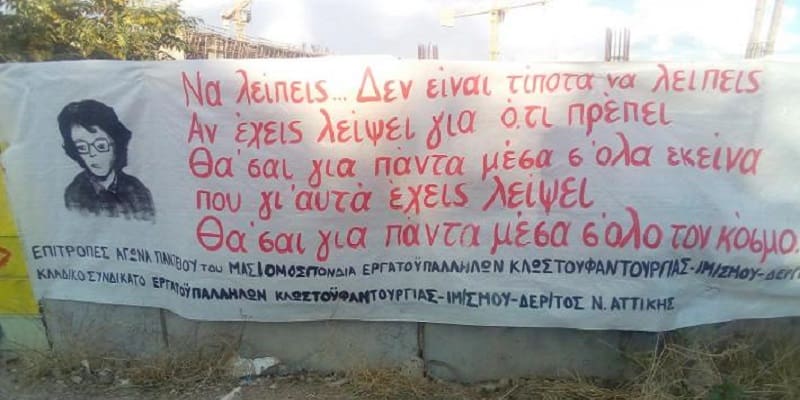 Να λείπεις... Δεν είναι τίποτα να λείπεις
Αν έχεις λείψει για ό,τι πρέπει
Θα'σαι για πάντα μέσα σ'όλα εκείνα
που γι'αυτά έχεις λείψει
Θα'σαι για πάντα μέσα σ'όλο τον κόσμο.
ΕΠΙΤΡΟΠΕΣ ΑΓΩΝΑ του ΜΑΣ ΟΜΟΣΠΟΝΔΙΑ ΕΡΓΑΤΟΫΠΑΛΛΗΛΩΝ ΚΛΩΣΤΟΫΦΑΝΤΟΥΡΓΙΑΣ-ΙΜ/ΣΜΟΥ-ΔΕΡ/
ΚΛΑΔΙΚΟ ΣΥΝΔΙΚΑΤΟ ΕΡΓΑΤΟΫΠΑΛΛΗΛΩΝ ΚΛΩΣΤΟΫΦΑΝΤΟΥΡΓΙΑΣ-ΙΜ/ΣΜΟΥ-ΔΕΡ/ΤΟΣ Ν. ΑΤΤΙΚΗΣ